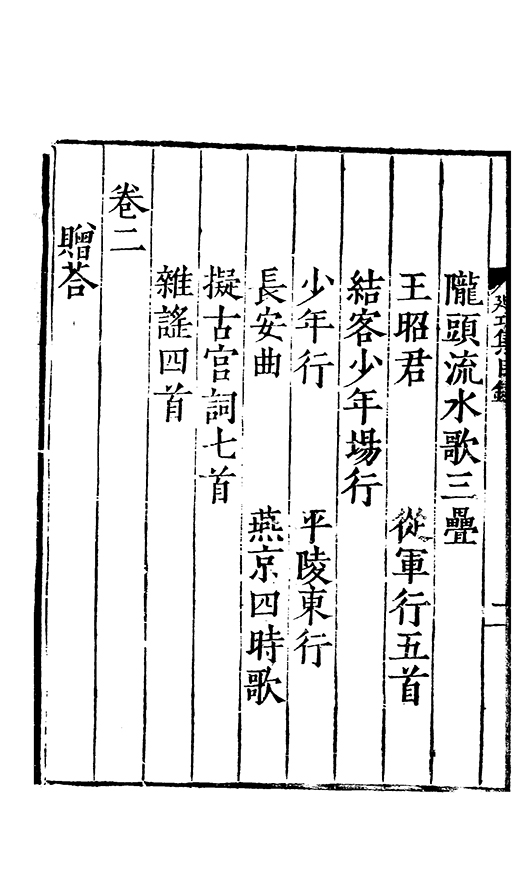 隴頭流水歌三疊
王昭君　從軍行五首
結客少年場行
少年行　平陵東行
長安曲　燕京四時歌
擬古宮詞七首
雜謠四首
卷二
贈荅
集目錄
二